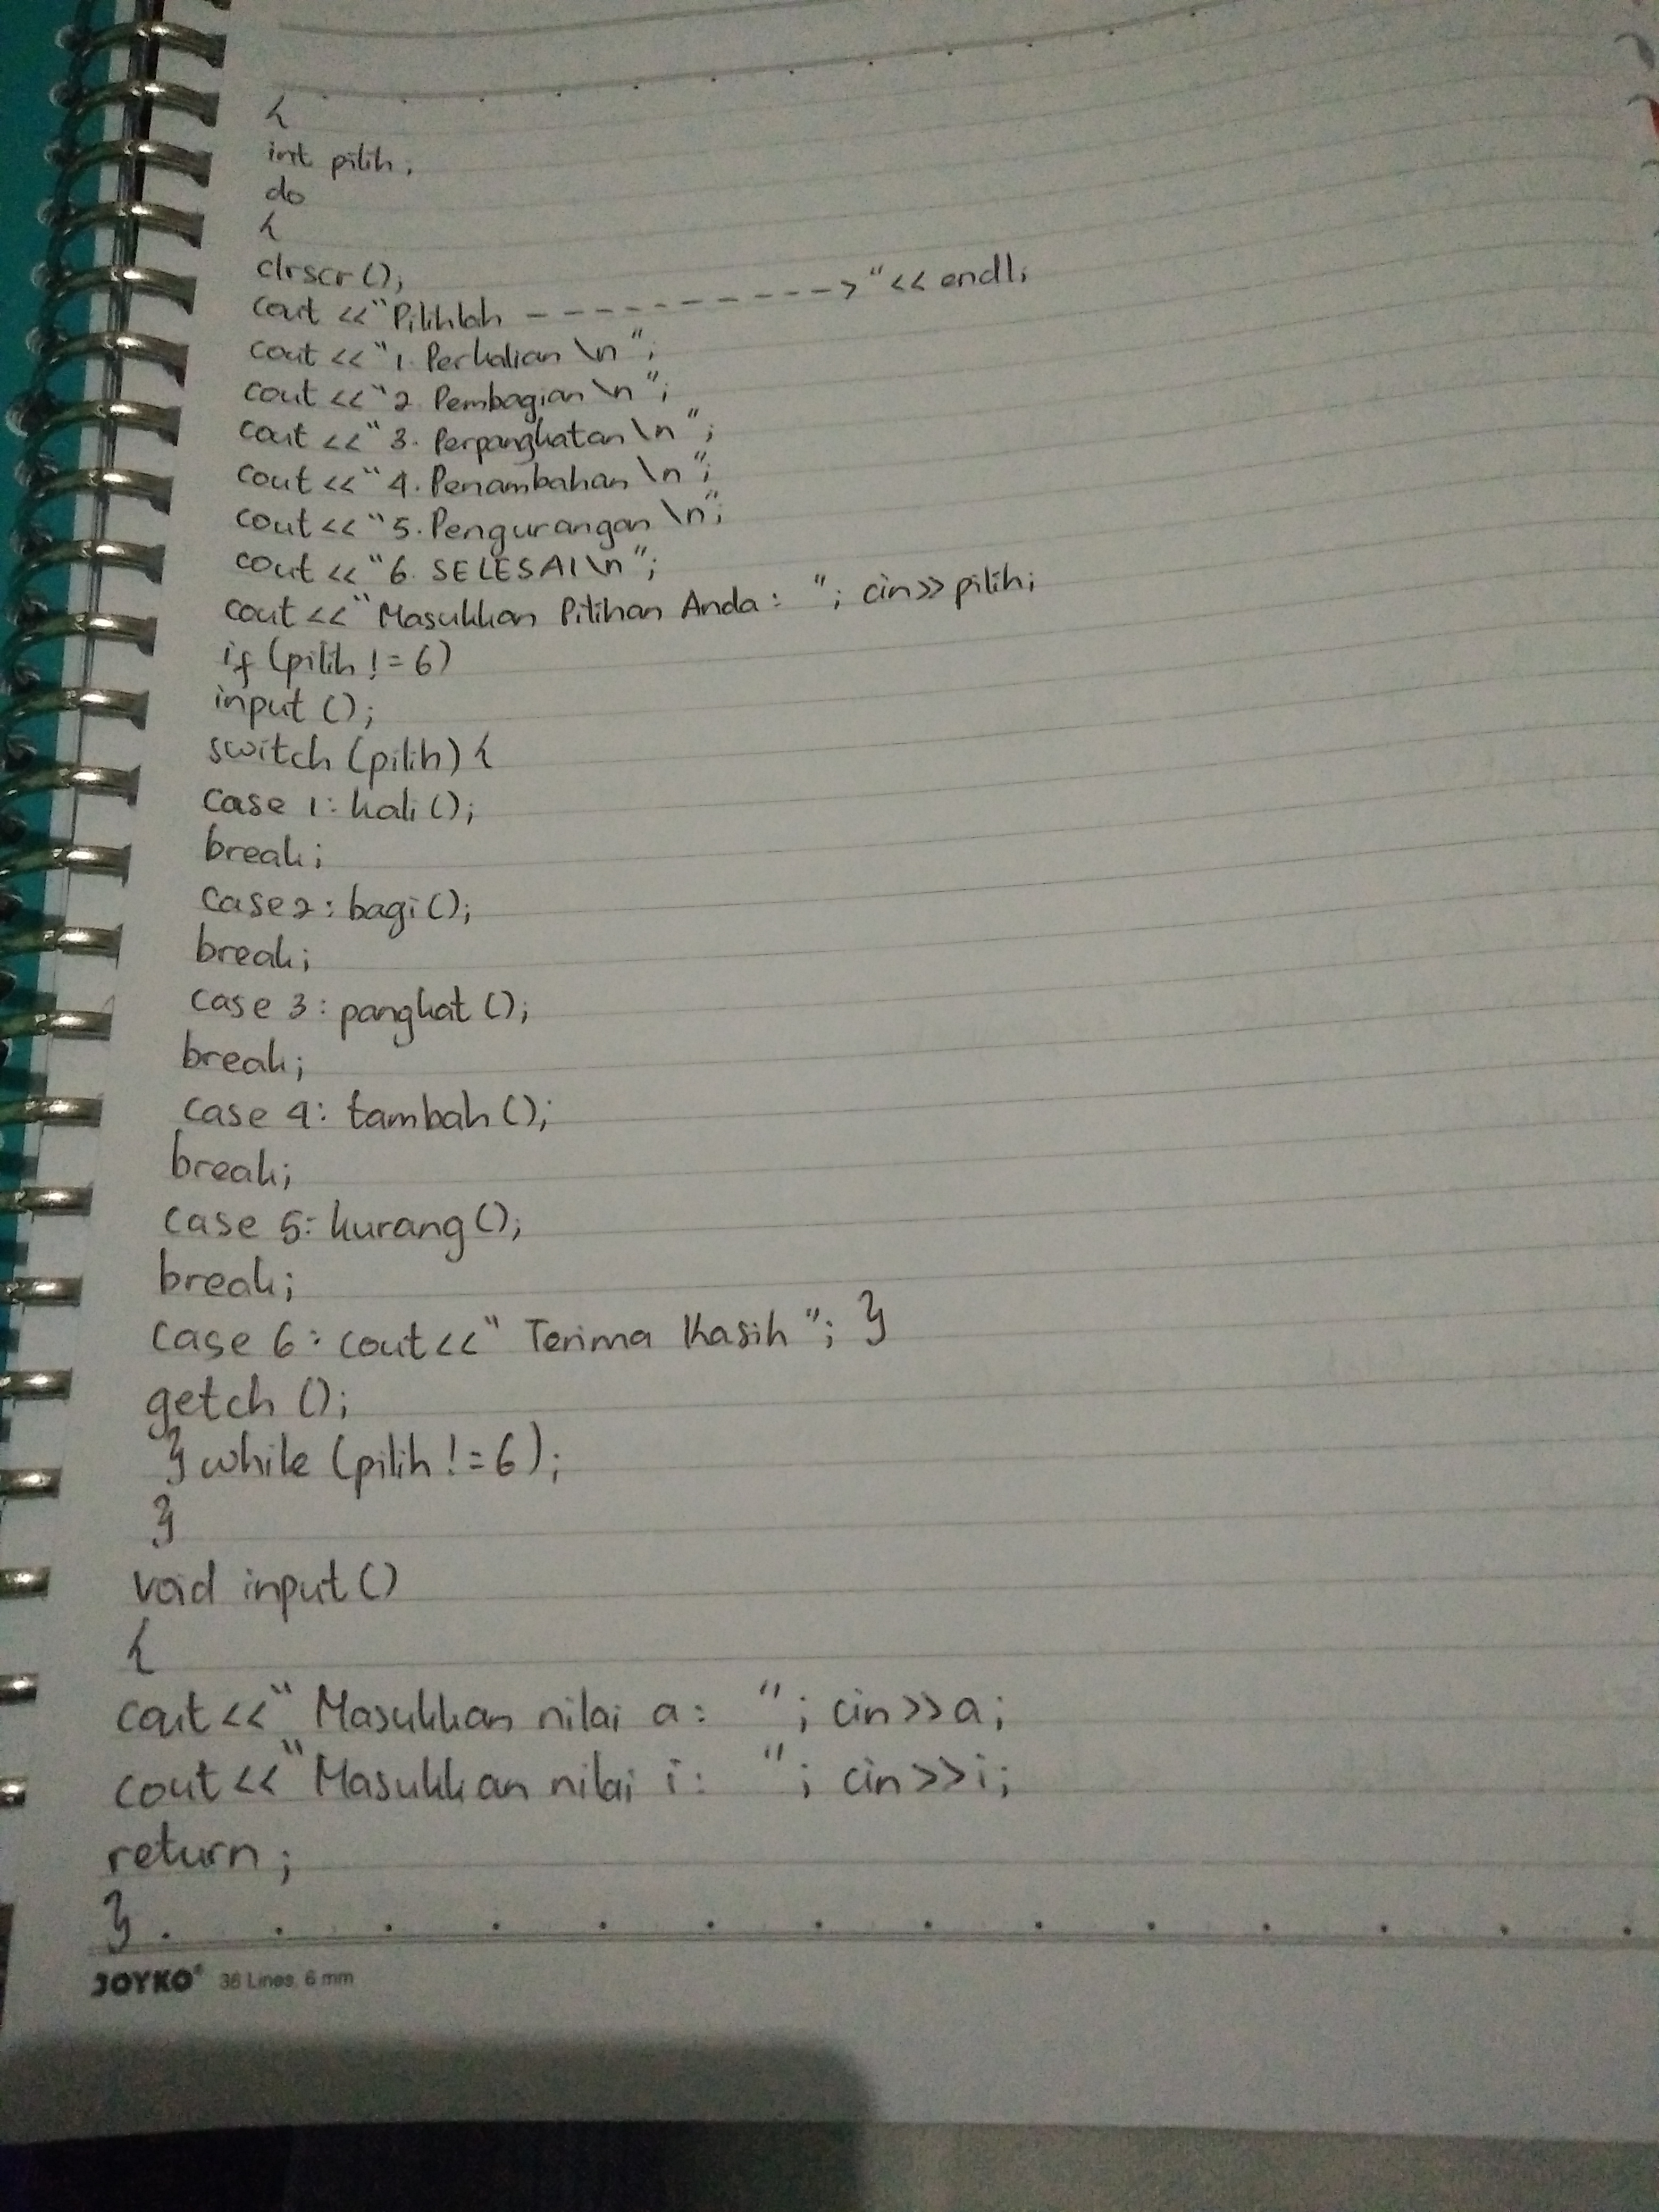 {
int pilih;
do
{
clrscr();
cout <<"Pilihlah ---------->"<< endl;
cout <<"1. Perkalian \n ";
cout <<"2. Pembagian \n ";
cout <<"3. Perpangkatan \n ";
cout <<"4. Penambahan \n ";
cout <<"5. Pengurangan \n";
cout <<"6. SELESAI \n ";
cout <<"Masukkan Pilihan Anda : "; cin>>pilih;
if (pilih != 6)
input ();
switch (pilih) {
case 1: kali ();
break;
case 2: bagi ();
break;
case 3: pangkat ();
break;
case 4: tambah ();
break;
case 5: kurang ();
break;
case 6: cout<<" Terima Kasih "; }
getch ();
} while (pilih != 6);
}
void input ()
{
cout<<" Masukkan nilai a: "; cin>>a;
cout<<"Masukkan nilai i: "; cin>>i;
return;
}
JOYKO® 36 Lines, 6 mm